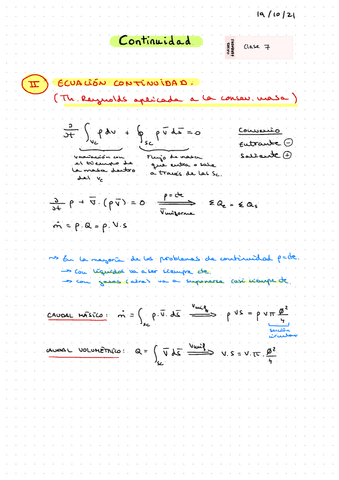 19/10/21
Continuidad
Clase 7
II ECUACIÓN CONTINUIDAD.
(Th. Reynolds aplicada a la conserv. masa)
∂/∂t ∫_VC ρ dv + ∮_SC ρ v̄ ds̄ = 0
Convenio
Entrante ⊖
Saliente ⊕
variación con el tiempo de la masa dentro del VC
Flujo de masa que entra o sale a través de las SC.
∂/∂t ρ + ∇̄·(ρv̄) = 0 ⟹ ΣQe = ΣQs
ρ = cte
v̄ uniforme
ṁ = ρ·Q = ρ·V·S
→ En la mayoría de los problemas de continuidad ρ=cte.
→ Con líquidos va a ser siempre cte.
→ con gases (aire) va a suponerse casi siempre cte.
CAUDAL MÁSICO: ṁ = ∫_SC ρ·v̄·ds̄ ⟹ ρVS = ρVπ Ø²/4
Vunif
sección circular
CAUDAL VOLUMÉTRICO: Q = ∫_SC v̄ ds̄ ⟹ V·S = V·π·Ø²/4
Vunif